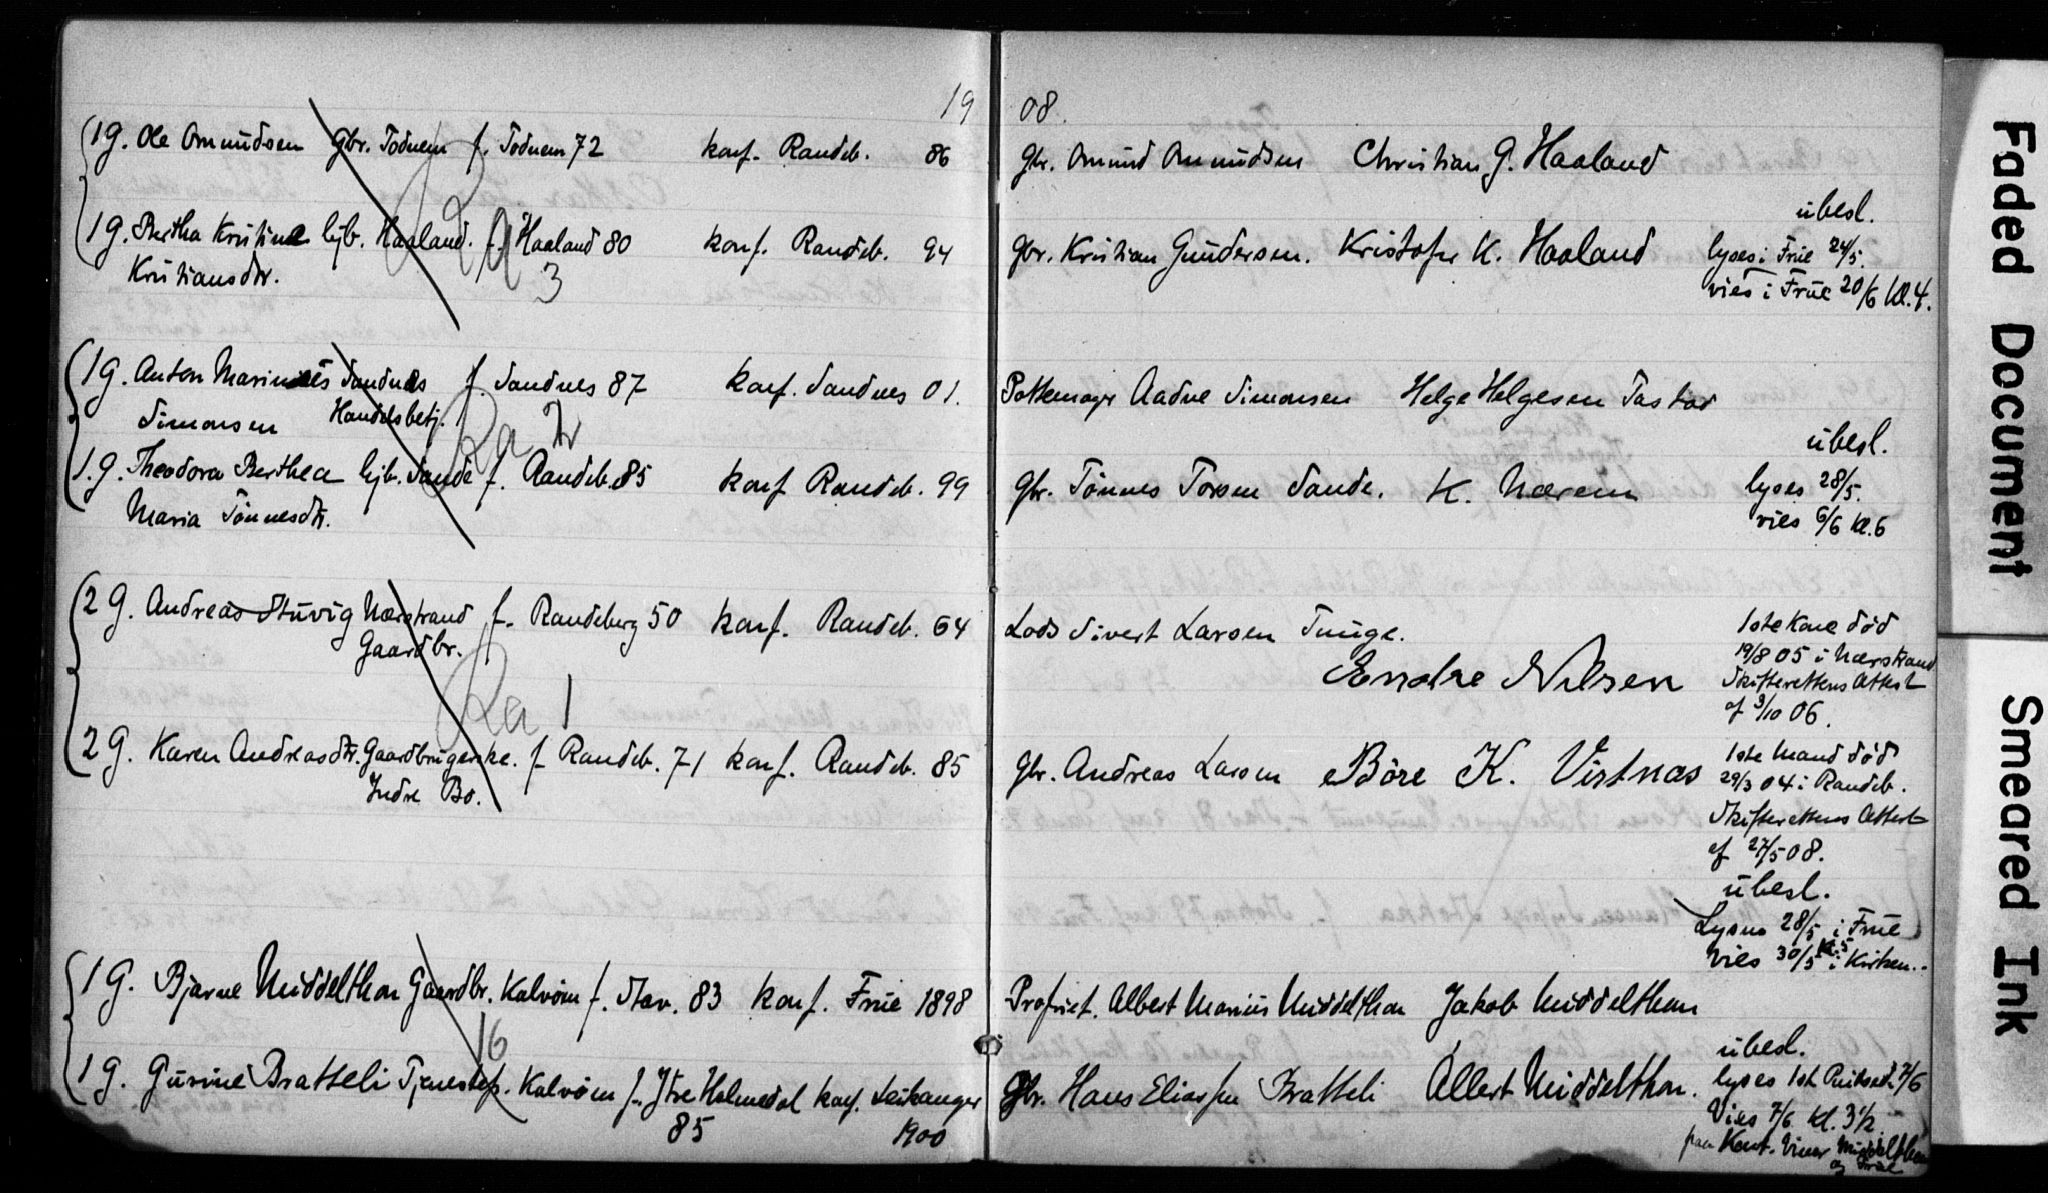 19 08.
1 g. Ole Omundsen gbr. Todnem f. Todnem 72 konf. Randeb. 86 gbr. Omund Omundsen Christian G. Haaland
Ra 3
ubesl.
1 g. Bertha Kristine hjb. Haaland. f. Haaland 80 konf. Randeb. 94 gbr. Kristian Gundersen. Kristofer K. Haaland lyses i Frue 24/5.
Kristiansdtr. vies i Frue 20/6 kl. 4.
1 g. Anton Marinius Sandnes f. Sandnes 87 konf. Sandnes 01. Pottemager Aadne Simonsen Helge Helgesen Tastad
Simonsen Handelsbetj.
Ra 2
ubesl.
1. g. Theodora Berthea hjb. Sande f. Randeb. 85 konf Randeb. 99 gbr. Tönnes Torsen Sande. K. Nærem lyses 28/5.
Maria Tönnesdtr. vies 6/6 kl. 6
2 g. Andreas Stuvig Nærstrand f. Randeberg 50 konf. Randeb. 64 Lods Sivert Larsen Tunge. 1ste Kone död
Gaardbr. Endre Nilsen 19/8 05 i Nærstrand
Skifterettens Attest
af 3/10 06.
Ra 1
2 g. Karen Andreasdtr. Gaardbrugerske. f Randeb. 71 konf. Randeb. 85 gbr. Andreas Larsen Böre K. Vistnæs 1ste Mand död
Indre Bö. 29/3 04 i Randeb.
Skifterettens Attest
af 27/5 08.
ubesl.
Lyses 28/5 i Frue
vies 30/5 kl. 5 i Kirken.
1 g. Bjarne Middelthon Gaardbr. Kalvöm f. Stav. 83 konf. Frue 1898 Propriet. Albert Marius Middelthon Jakob Middelthon
16
ubesl.
1 g. Gurine Bratteli Tjenestep. Kalvöm f. Ytre Holmedal konf. Leikanger gbr. Hans Eliassen Bratteli Albert Middelthon. lyses 1st Pintsed. 7/6
85 1900 Vies 7/6 kl. 3 1/2
paa Kont. Middelthon
og Frue
Faded Document Smeared Ink